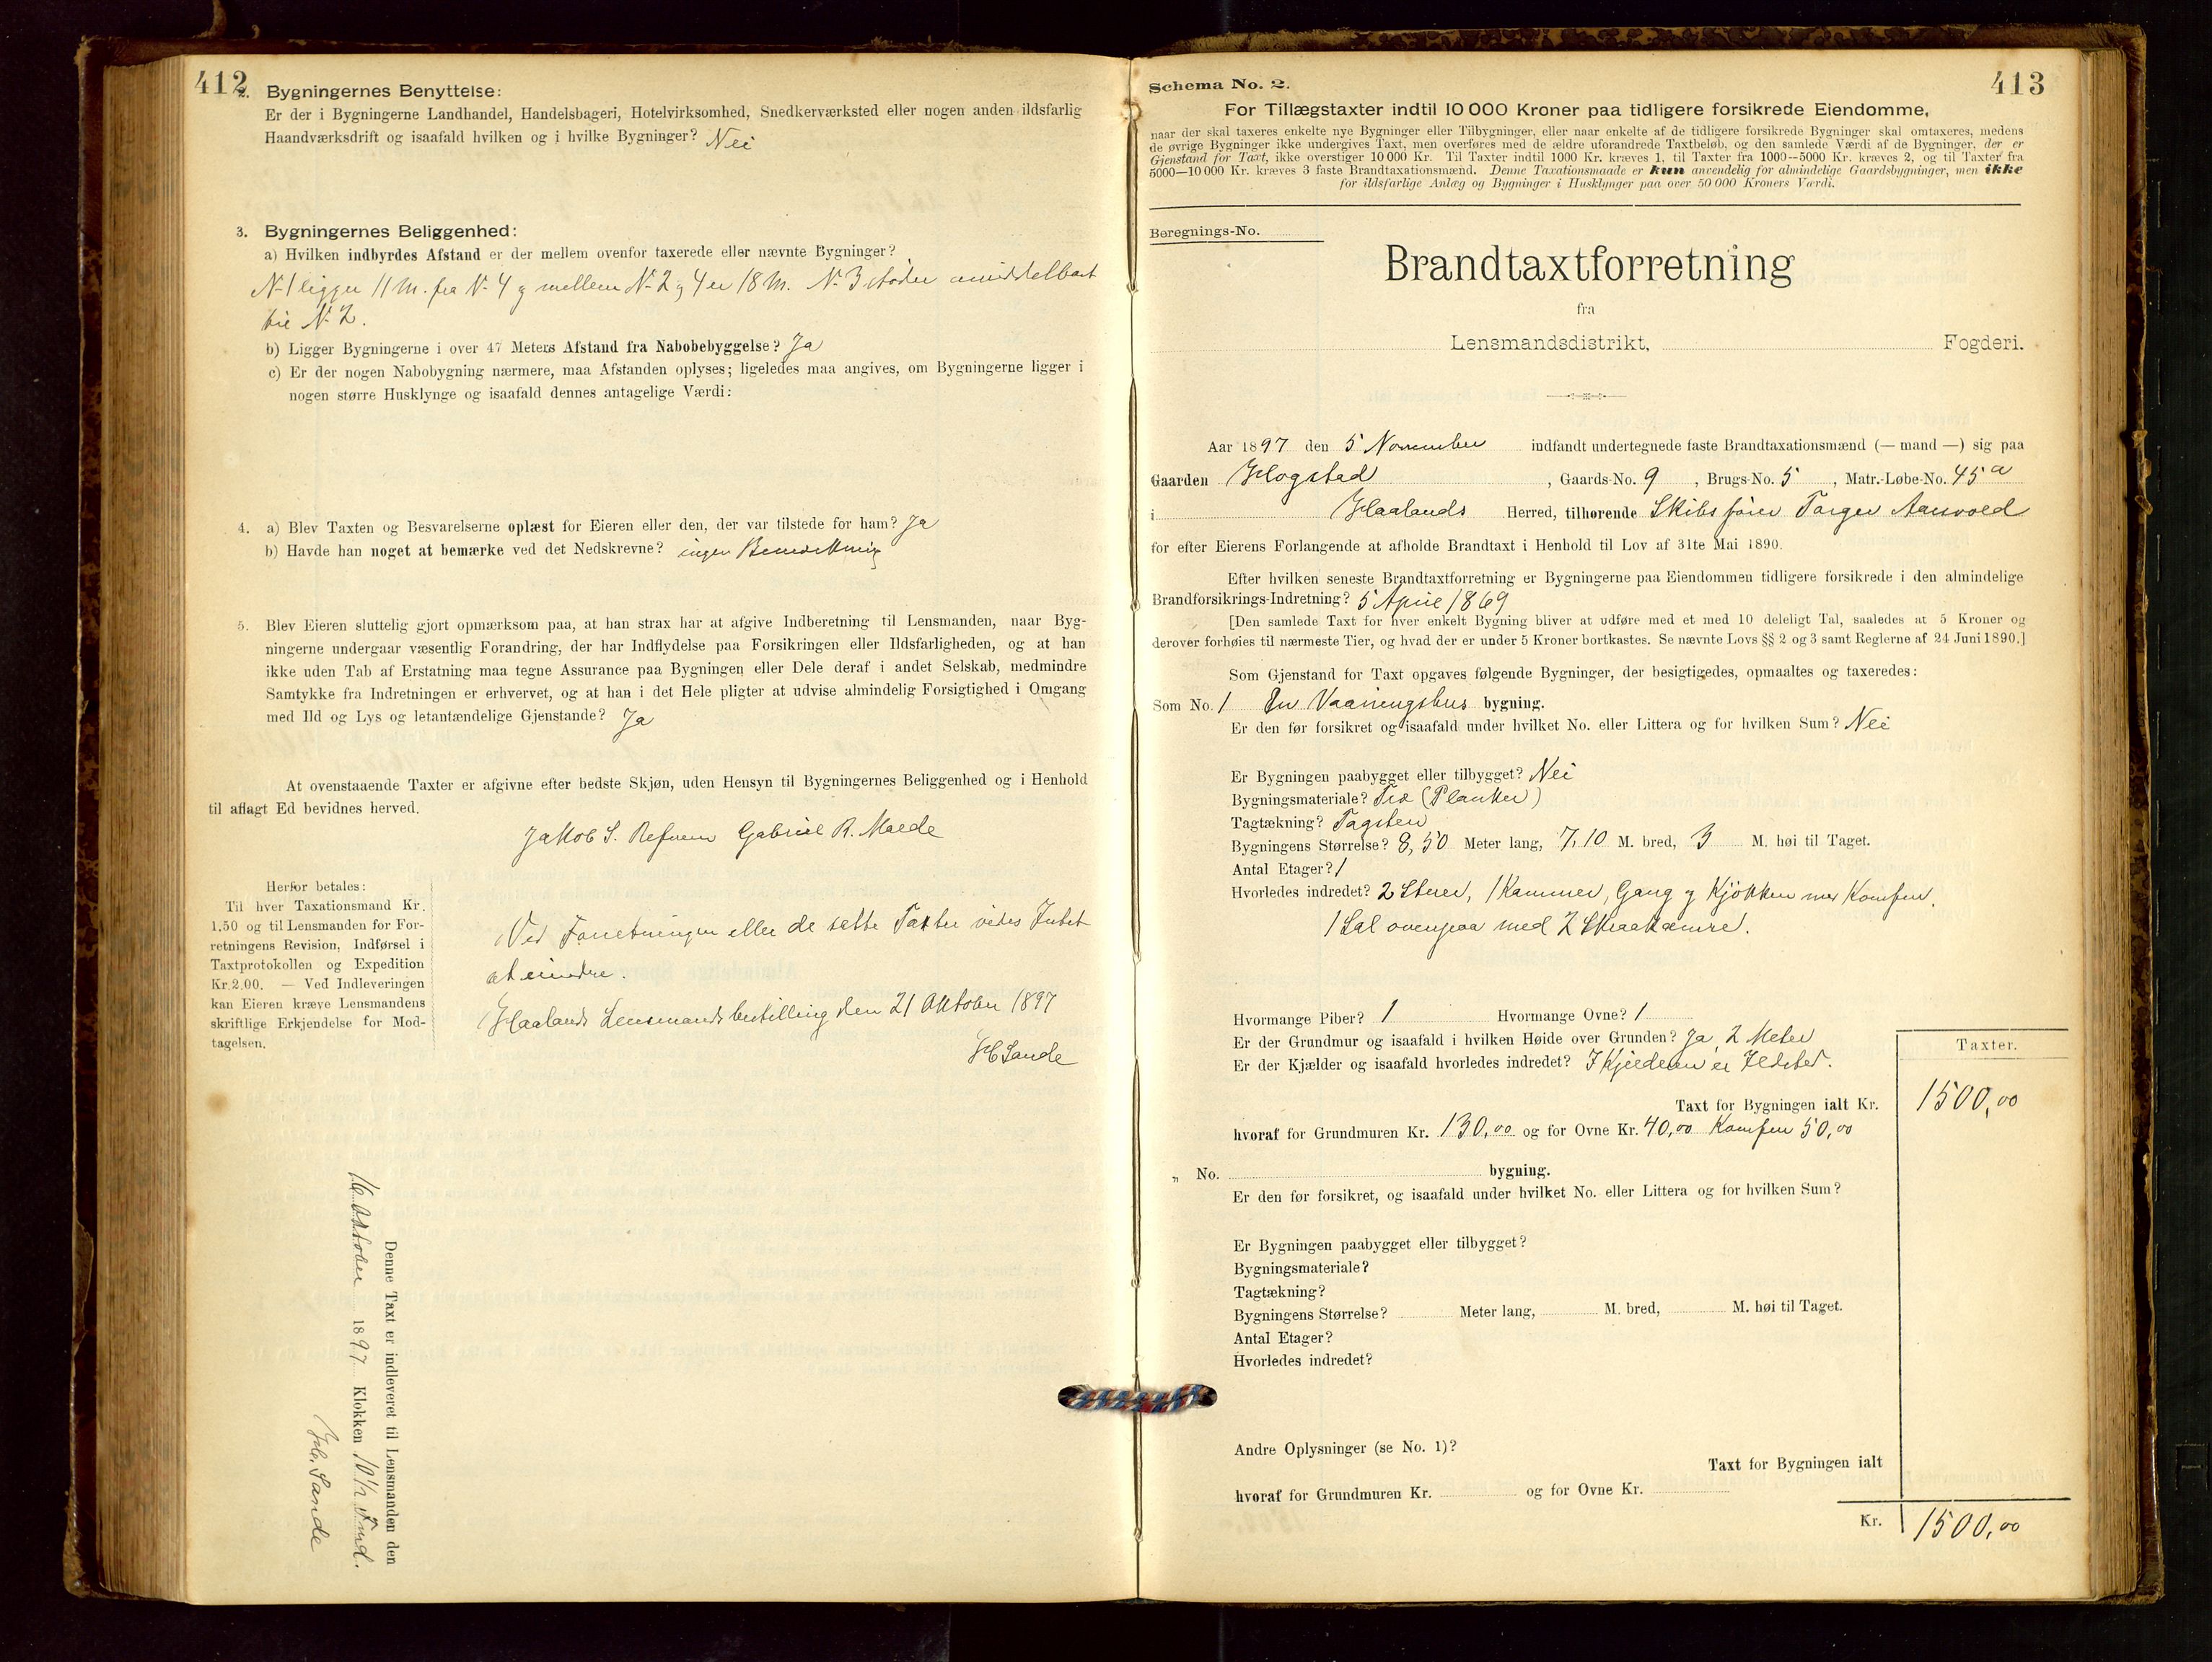 412
2. Bygningernes Benyttelse:
Er der i Bygningerne Landhandel, Handelsbageri, Hotelvirksomhed, Snedkerværksted eller nogen anden ildsfarlig
Haandværksdrift og isaafald hvilken og i hvilke Bygninger? Nei
3. Bygningernes Beliggenhed:
a) Hvilken indbyrdes Afstand er der mellem ovenfor taxerede eller nævnte Bygninger?
N-1 ligger 11 M. fra N-4 og mellem N-2 og 4 er 18 M. N-3 støder umiddelbart
til N-2.
b) Ligger Bygningerne i over 47 Meters Afstand fra Nabobebyggelse? Ja
c) Er der nogen Nabobygning nærmere, maa Afstanden oplyses; ligeledes maa angives, om Bygningerne ligger i
nogen større Husklynge og isaafald dennes antagelige Værdi:
4. a) Blev Taxten og Besvarelserne oplæst for Eieren eller den, der var tilstede for ham? Ja
b) Havde han noget at bemærke ved det Nedskrevne? ingen Bemerkning
5. Blev Eieren sluttelig gjort opmærksom paa, at han strax har at afgive Indberetning til Lensmanden, naar Byg-
ningerne undergaar væsentlig Forandring, der har Indflydelse paa Forsikringen eller Ildsfarligheden, og at han
ikke uden Tab af Erstatning maa tegne Assurance paa Bygningen eller Dele deraf i andet Selskab, medmindre
Samtykke fra Indretningen er erhvervet, og at han i det Hele pligter at udvise almindelig Forsigtighed i Omgang
med Ild og Lys og letantændelige Gjenstande? Ja
At ovenstaaende Taxter er afgivne efter bedste Skjøn, uden Hensyn til Bygningernes Beliggenhed og i Henhold
til aflagt Ed bevidnes herved.
Jakob S. Refnem Gabriel R. Malde
Herfor betales:
Til hver Taxationsmand Kr.
1,50 og til Lensmanden for For-
retningens Revision, Indførsel i
Taxtprotokollen og Expedition
Kr. 2.00. — Ved Indleveringen
kan Eieren kræve Lensmandens
skriftlige Erkjendelse for Mod-
tagelsen.
Ved Forretningen eller de satte Taxter vides Intet
at erindre.
Haalands Lensmandsbestilling den 21 Oktober 1897
H Sande
Denne Taxt er indleveret til Lensmanden den
16 Oktober 1897 Klokken 10 1/2 Fmd.
H. Sande
413
Schema No. 2.
For Tillægstaxter indtil 10 000 Kroner paa tidligere forsikrede Eiendomme,
naar der skal taxeres enkelte nye Bygninger eller Tilbygninger, eller naar enkelte af de tidligere forsikrede Bygninger skal omtaxeres, medens
de øvrige Bygninger ikke undergives Taxt, men overføres med de ældre uforandrede Taxtbeløb, og den samlede Værdi af de Bygninger, der er
Gjenstand for Taxt, ikke overstiger 10 000 Kr. Til Taxter indtil 1000 Kr. kræves 1, til Taxter fra 1000—5000 Kr. kræves 2, og til Taxter fra
5000—10 000 Kr. kræves 3 faste Brandtaxationsmænd. Denne Taxationsmaade er kun anvendelig for almindelige Gaardsbygninger, men ikke
for ildsfarlige Anlæg og Bygninger i Husklynger paa over 50 000 Kroners Værdi.
Beregnings-No.
Brandtaxtforretning
fra
Lensmandsdistrikt, Fogderi.
Aar 1897 den 5 November indfandt undertegnede faste Brandtaxationsmænd (— mand —) sig paa
Gaarden Hogstad, Gaards-No. 9, Brugs-No. 5, Matr.-Løbe-No. 45a
i Haalands Herred, tilhørende Skibsfører Torger Aanvold
for efter Eierens Forlangende at afholde Brandtaxt i Henhold til Lov af 31te Mai 1890.
Efter hvilken seneste Brandtaxtforretning er Bygningerne paa Eiendommen tidligere forsikrede i den almindelige
Brandforsikrings-Indretning? 5 April 1869
[Den samlede Taxt for hver enkelt Bygning bliver at udføre med et med 10 deleligt Tal, saaledes at 5 Kroner og
derover forhøies til nærmeste Tier, og hvad der er under 5 Kroner bortkastes. Se nævnte Lovs §§ 2 og 3 samt Reglerne af 24 Juni 1890.]
Som Gjenstand for Taxt opgaves følgende Bygninger, der besigtigedes, opmaaltes og taxeredes:
Som No. 1 En Vaaningshus bygning.
Er den før forsikret og isaafald under hvilket No. eller Littera og for hvilken Sum? Nei
Er Bygningen paabygget eller tilbygget? Nei
Bygningsmateriale? Træ (Planker)
Tagtækning? Tagsten
Bygningens Størrelse? 8,50 Meter lang, 7,10 M. bred, 3 M. høi til Taget.
Antal Etager? 1
Hvorledes indredet? 2 Stuer, 1 Kammer, Gang og Kjøkken med Komfur.
1 Sal ovenpaa med 2 Skraakamre.
Hvormange Piber? 1 Hvormange Ovne? 1
Er der Grundmur og isaafald i hvilken Høide over Grunden? Ja, 2 Meter
Er der Kjælder og isaafald hvorledes indredet? I Kjelderen er Ildsted.
Taxter.
Taxt for Bygningen ialt Kr. 1500,00
hvoraf for Grundmuren Kr. 130,00 og for Ovne Kr. 40,00 Komfur 50,00
„ No. bygning.
Er den før forsikret, og isaafald under hvilket No. eller Littera og for hvilken Sum?
Er Bygningen paabygget eller tilbygget?
Bygningsmateriale?
Tagtækning?
Bygningens Størrelse? Meter lang, M. bred, M. høi til Taget.
Antal Etager?
Hvorledes indredet?
Andre Oplysninger (se No. 1)?
Taxt for Bygningen ialt
hvoraf for Grundmuren Kr. og for Ovne Kr.
Kr. 1500,00